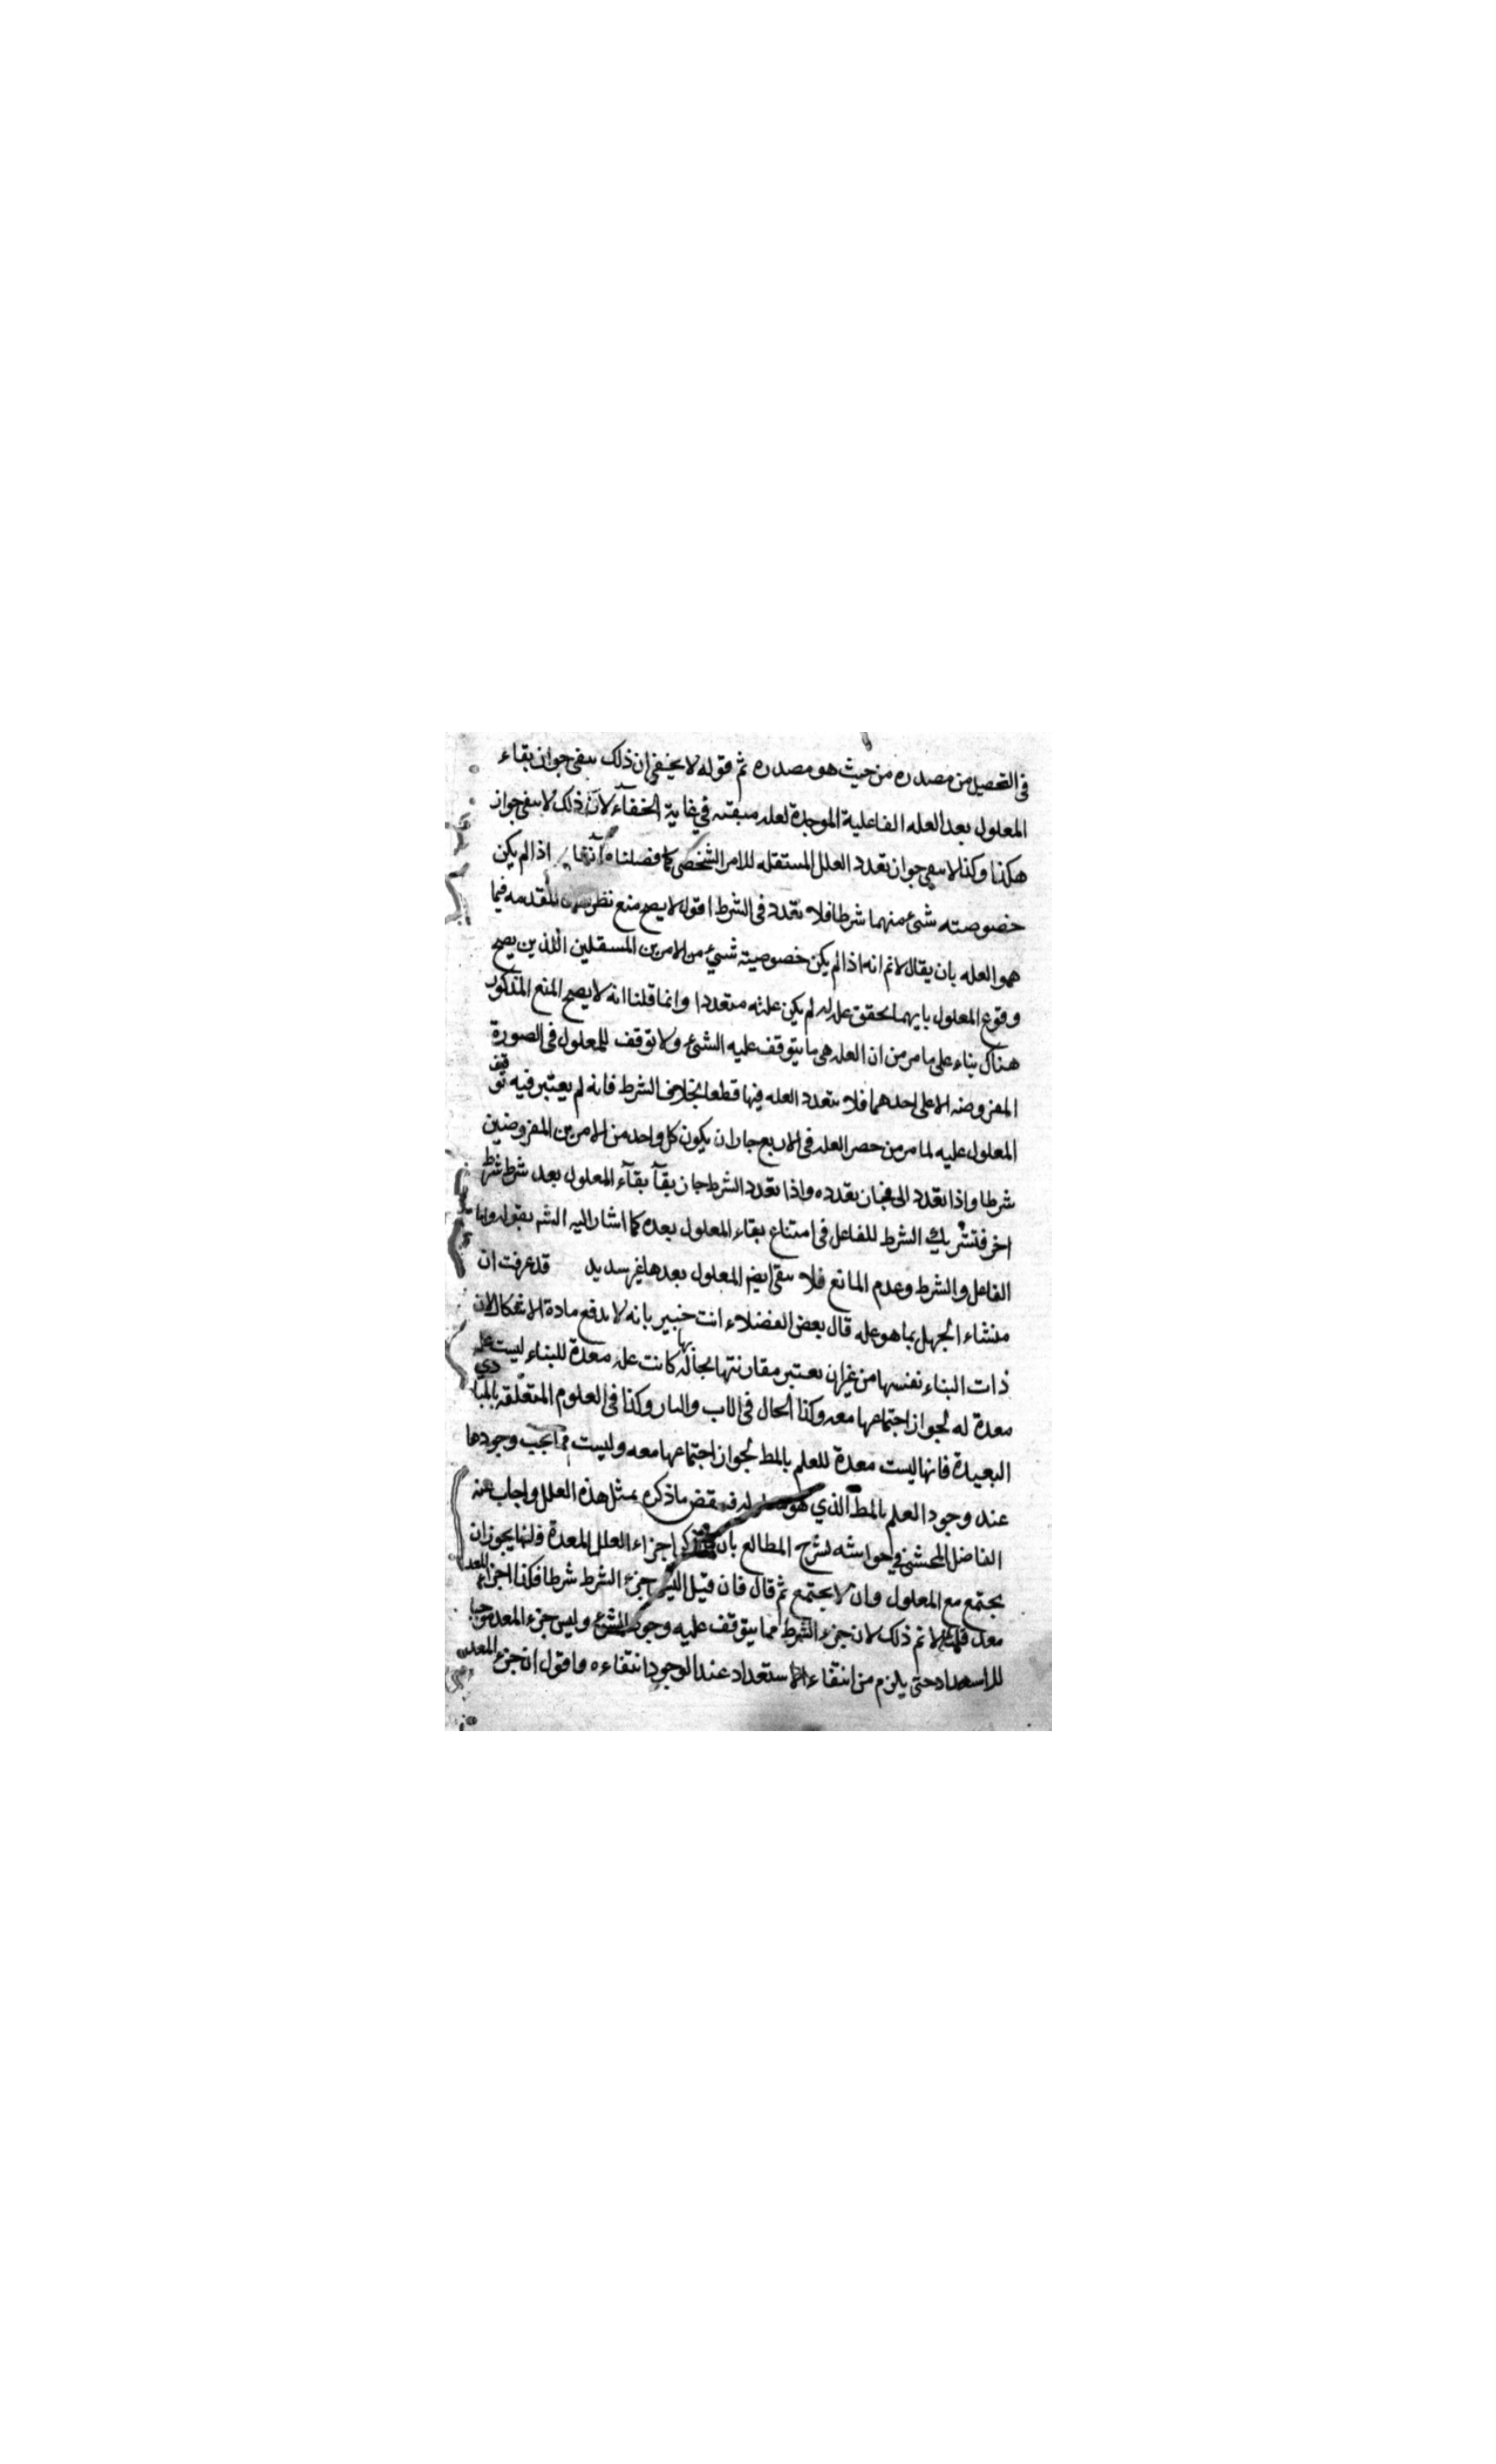 في التحصيل من مصدره من حيث هو مصدره ثم قوله لا يخفى ان ذلك ينفي جواز بقاء
المعلول بعد العله الفاعلية الموجدة لعله مبقيه في غاية الخفاء لان ذلك لا ينفي جواز
هكذا وكذا لا ينفي جواز تعدد العلل المستقله للامر الشخصي كما فصلناه آنفا اذا لم يكن
خصوصيته شئ منهما شرطا فلا تعدد في الشرط اقول لا يصح منع نظير للمقدمه فيما
هو العله بان يقال لانم انه اذا لم يكن خصوصية شئ من الامرين المستقلين اللذين يصح
وقوع المعلول بايهما تحقق عله له لم يكن علته متعددا وانما قلنا انه لا يصح المنع المذكور
هناك بناء على ما مر من ان العله هي ما يتوقف عليه الشئ ولا توقف للمعلول في الصورة
المفروضه الا على احدهما فلا يتعدد العله فيها قطعا بخلاف الشرط فانه لم يعتبر فيه توقف
المعلول عليه لما مر من حصر العله في الاربع جاز ان يكون كل واحد من الامرين المفروضين
شرطا واذا تعدد الى فجاز تعدده واذا تعدد الشرط جاز بقآ بقآء المعلول بعد شرط شرط
اخر فتشريك الشرط للفاعل في امتناع بقاء المعلول بعده كما اشار اليه الشه بقوله واما
الفاعل والشرط وعدم المانع فلا يبقى ايضا المعلول بعدها غير سديد قد عرفت ان
منشاء الجهل بما هو عله قال بعض الفضلاء انت خبير بانه لا يدفع مادة الاشكال لان
ذات البناء نفسها من غير ان يعتبر مقارنتها بحاله كانت بها عله معدة للبناء ليست عله
معدة له لجواز اجتماعها معه وكذا الحال في الاب والنار وكذا في العلوم المتعلقه بالمبادي
البعيدة فانها ليست معدة للعلم بالمط لجواز اجتماعها معه وليست مما يجب وجودها
عند وجود العلم بالمط الذي هو له فينقض ما ذكره بمثل هذه العلل واجاب عنه
الفاضل المحشي في حواشيه لشرح المطالع بان اجزاء العلل المعدة وانها يجوز ان
يجتمع مع المعلول وان لا يجتمع ثم قال فان قيل اليس جزء الشرط شرطا فكذا اجزاء المعد
معد قلت لانم ذلك لان جزء الشرط مما يتوقف عليه وجود الشئ وليس جزء المعد موجبا
للاستعداد حتى يلزم من انتفاء الاستعداد عند الوجود انتفاءه واقول ان جزء المعد